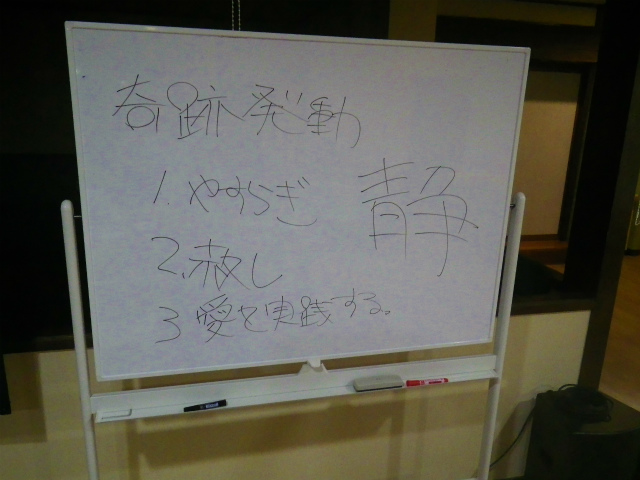 奇跡発動
1. やすらぎ
静
2. 赦し
3 愛を実践する。